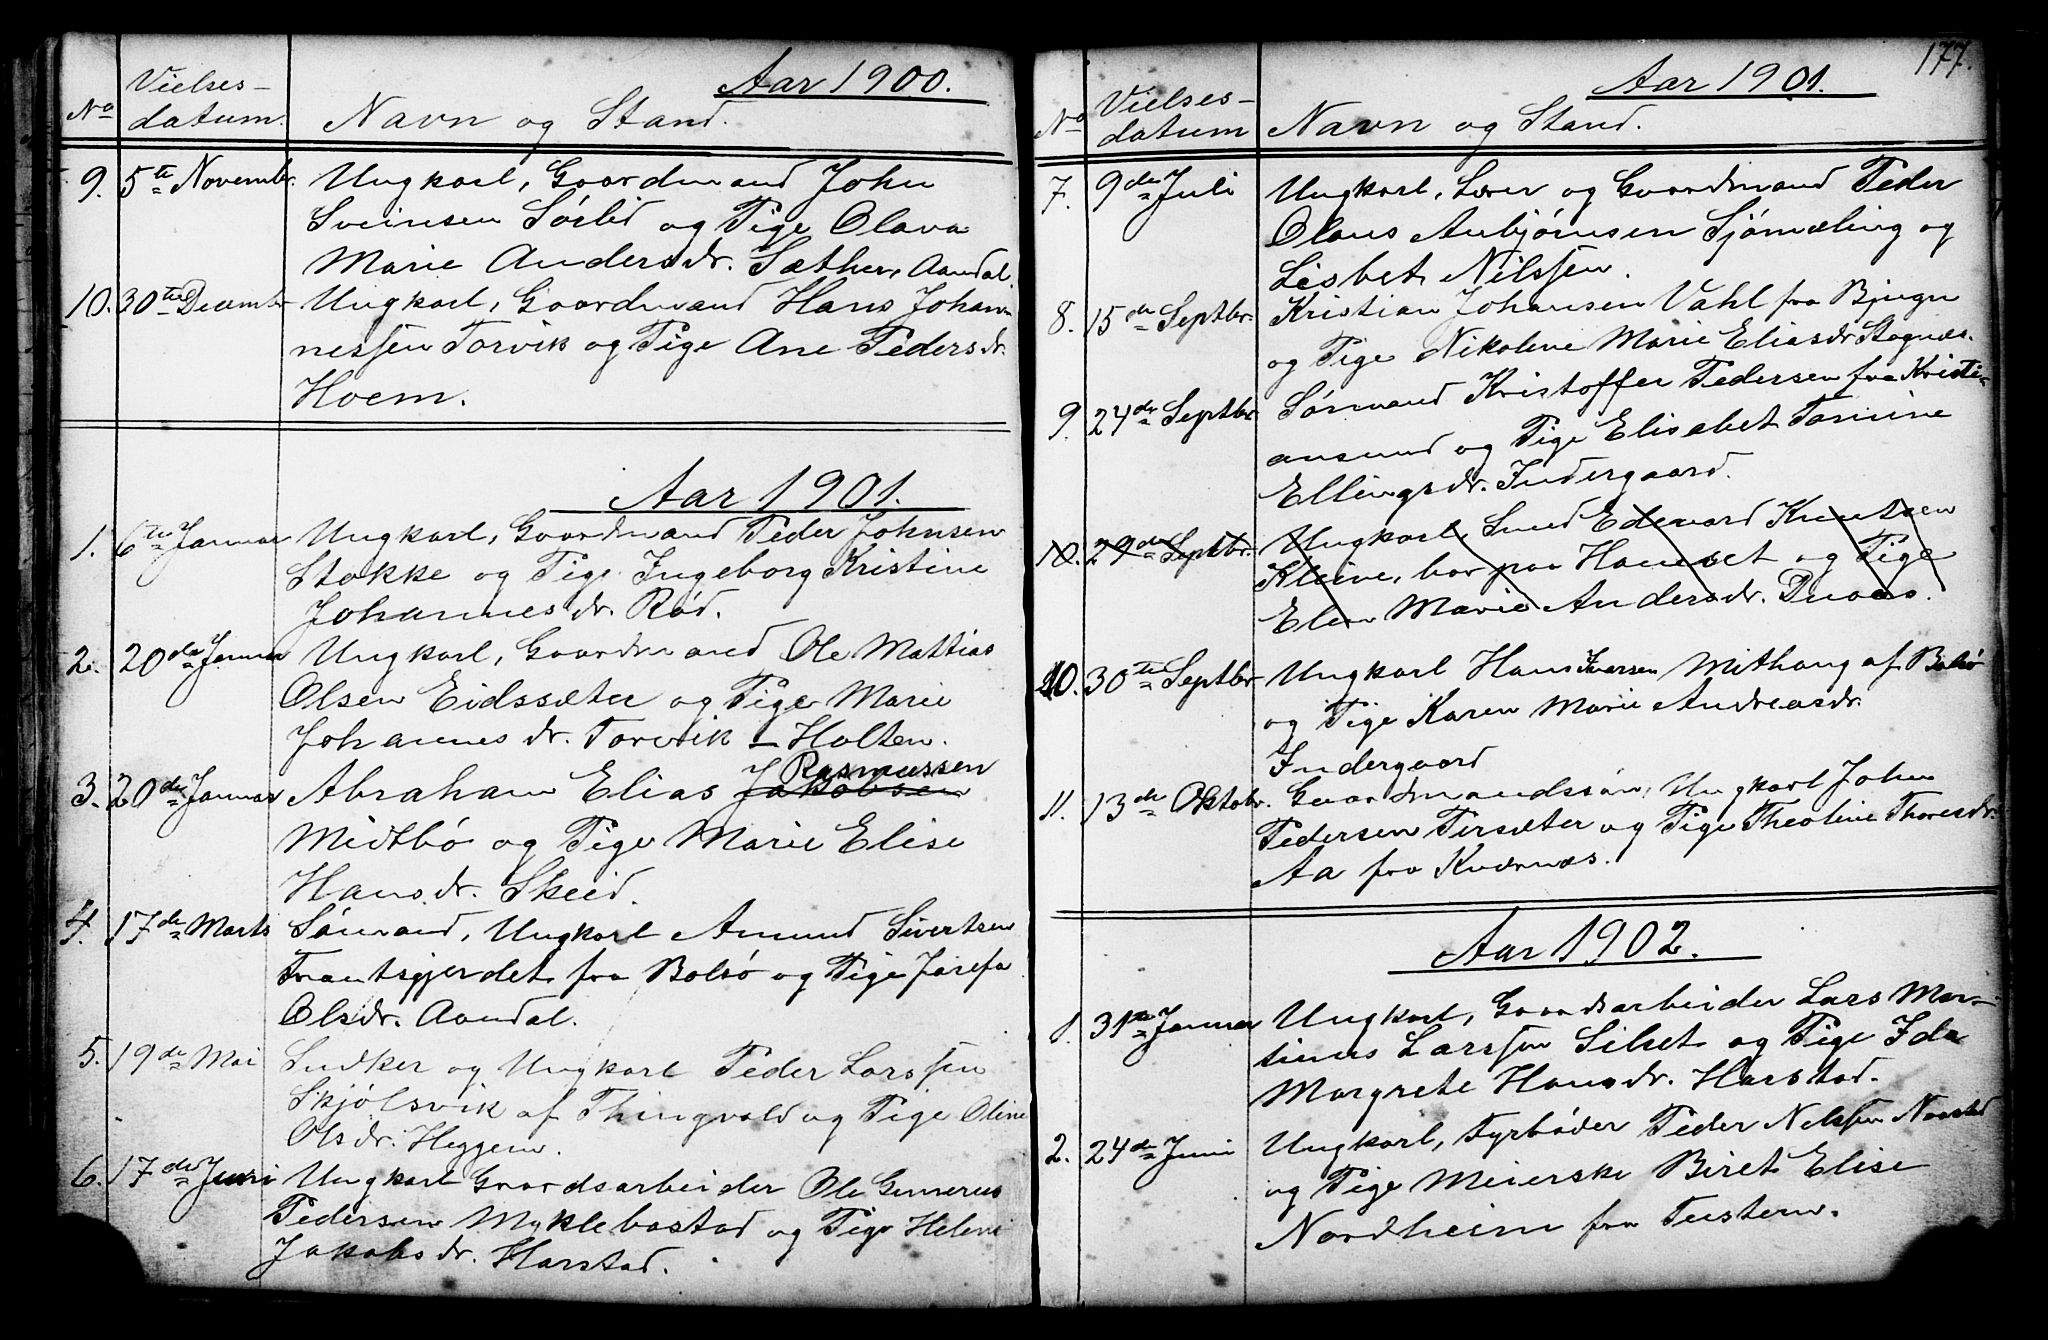 Aar 1900.
No Vielses-
datum. Navn og Stand.
9. 5te Novembr. Ungkarl, Gaardmand John
Sveinsen Sørlid og Pige Olava
Marie Andersdr. Sæther, Aandal.
10. 30te Decembr Ungkarl, Gaardmand Hans Johan-
nessen Torvik og Pige Ane Pedersdr.
Hoem.
Aar 1901.
1. 6te Januar Ungkarl, Gaardmand Peder Johnsen
Stokke og Pige Ingeborg Kristine
Johannesdr. Rød.
2. 20de Januar Ungkarl, Gaardmand Ole Mattias
Olsen Eidssæter og Pige Marie
Johannesdr. Torvik - Holten.
Rasmussen
3. 20de Januar Abraham Elias Jakobsen
Midtbø og Pige Marie Elise
Hansdr. Skeid.
4. 17de Marts Sømand, Ungkarl Amund Sivertsen
Trantsgjerdet fra Bolsø og Pige Josefa
Olsdr. Aandal.
5. 19de Mai Sndker og Ungkarl Peder Larssen
Skjølsvik af Thingvold og Pige Oline
Olsdr. Heggem.
6. 17de Juni Ungkarl Gaardsarbeider Ole Gunerus
Pedersen Myklebostad og Pige Helene
Jakobsdr. Harstad.
177.
Aar 1901.
No Vielses-
datum Navn og Stand.
7. 9de Juli Ungkarl, Lærer og Gaardmand Peder
Olaus Anbjørnsen Sjømæling og
Lisbet Nilssen.
8. 15de Septbr. Kristian Johansen Vahl fra Bjugn
og Pige Nikoline Marie Eliasdr. Stagnæs.
9. 24de Septbr. Sømand Kristoffer Pedersen fra Kristi-
ansund og Pige Elisabet Tomine
Ellingsdr. Indergaard.
10. 29de Septbr. Ungkarl Smed Edevard Knutsen
Kleive, bor paa Haneset og Pige
Elen Marie Andersdr.
10. 30te Septbr Ungkarl Hans Iversen Mithaug af Bolsø
og Pige Karen Marie Andreasdr.
Indergaard
11. 13de Oktobr. Gaardmandssøn, Ungkarl John
Pedersen Tirsæter og Pige Theoline Thoresdr.
Aa fra Kvernæs.
Aar 1902.
1. 31te Januar Ungkarl, Gaardsarbeider Lars Mar-
tinus Larssen Silset og Pige Ida
Margrete Hansdr. Harstad.
2. 24de Juni Ungkarl, Fyrbøder Peder Nelssen Naastad
og Pige Meierske Biret Elise
Nordheim fra Tustern.